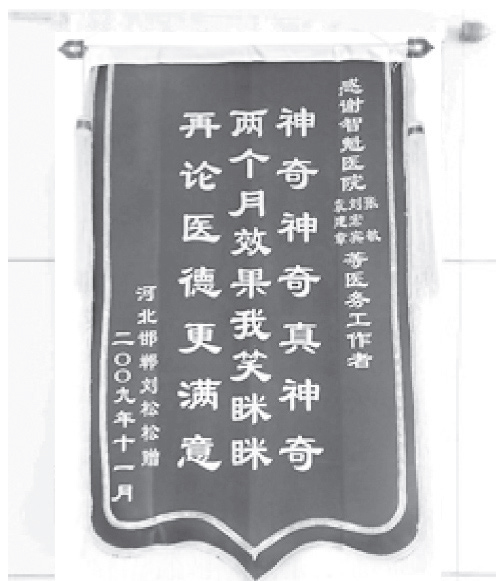 感谢智魁医院
张敏
刘宏宾
袁建章
等医务工作者
神奇神奇真神奇
两个月效果我笑眯眯
再论医德更满意
河北邯郸刘松松赠
二〇〇九年十一月